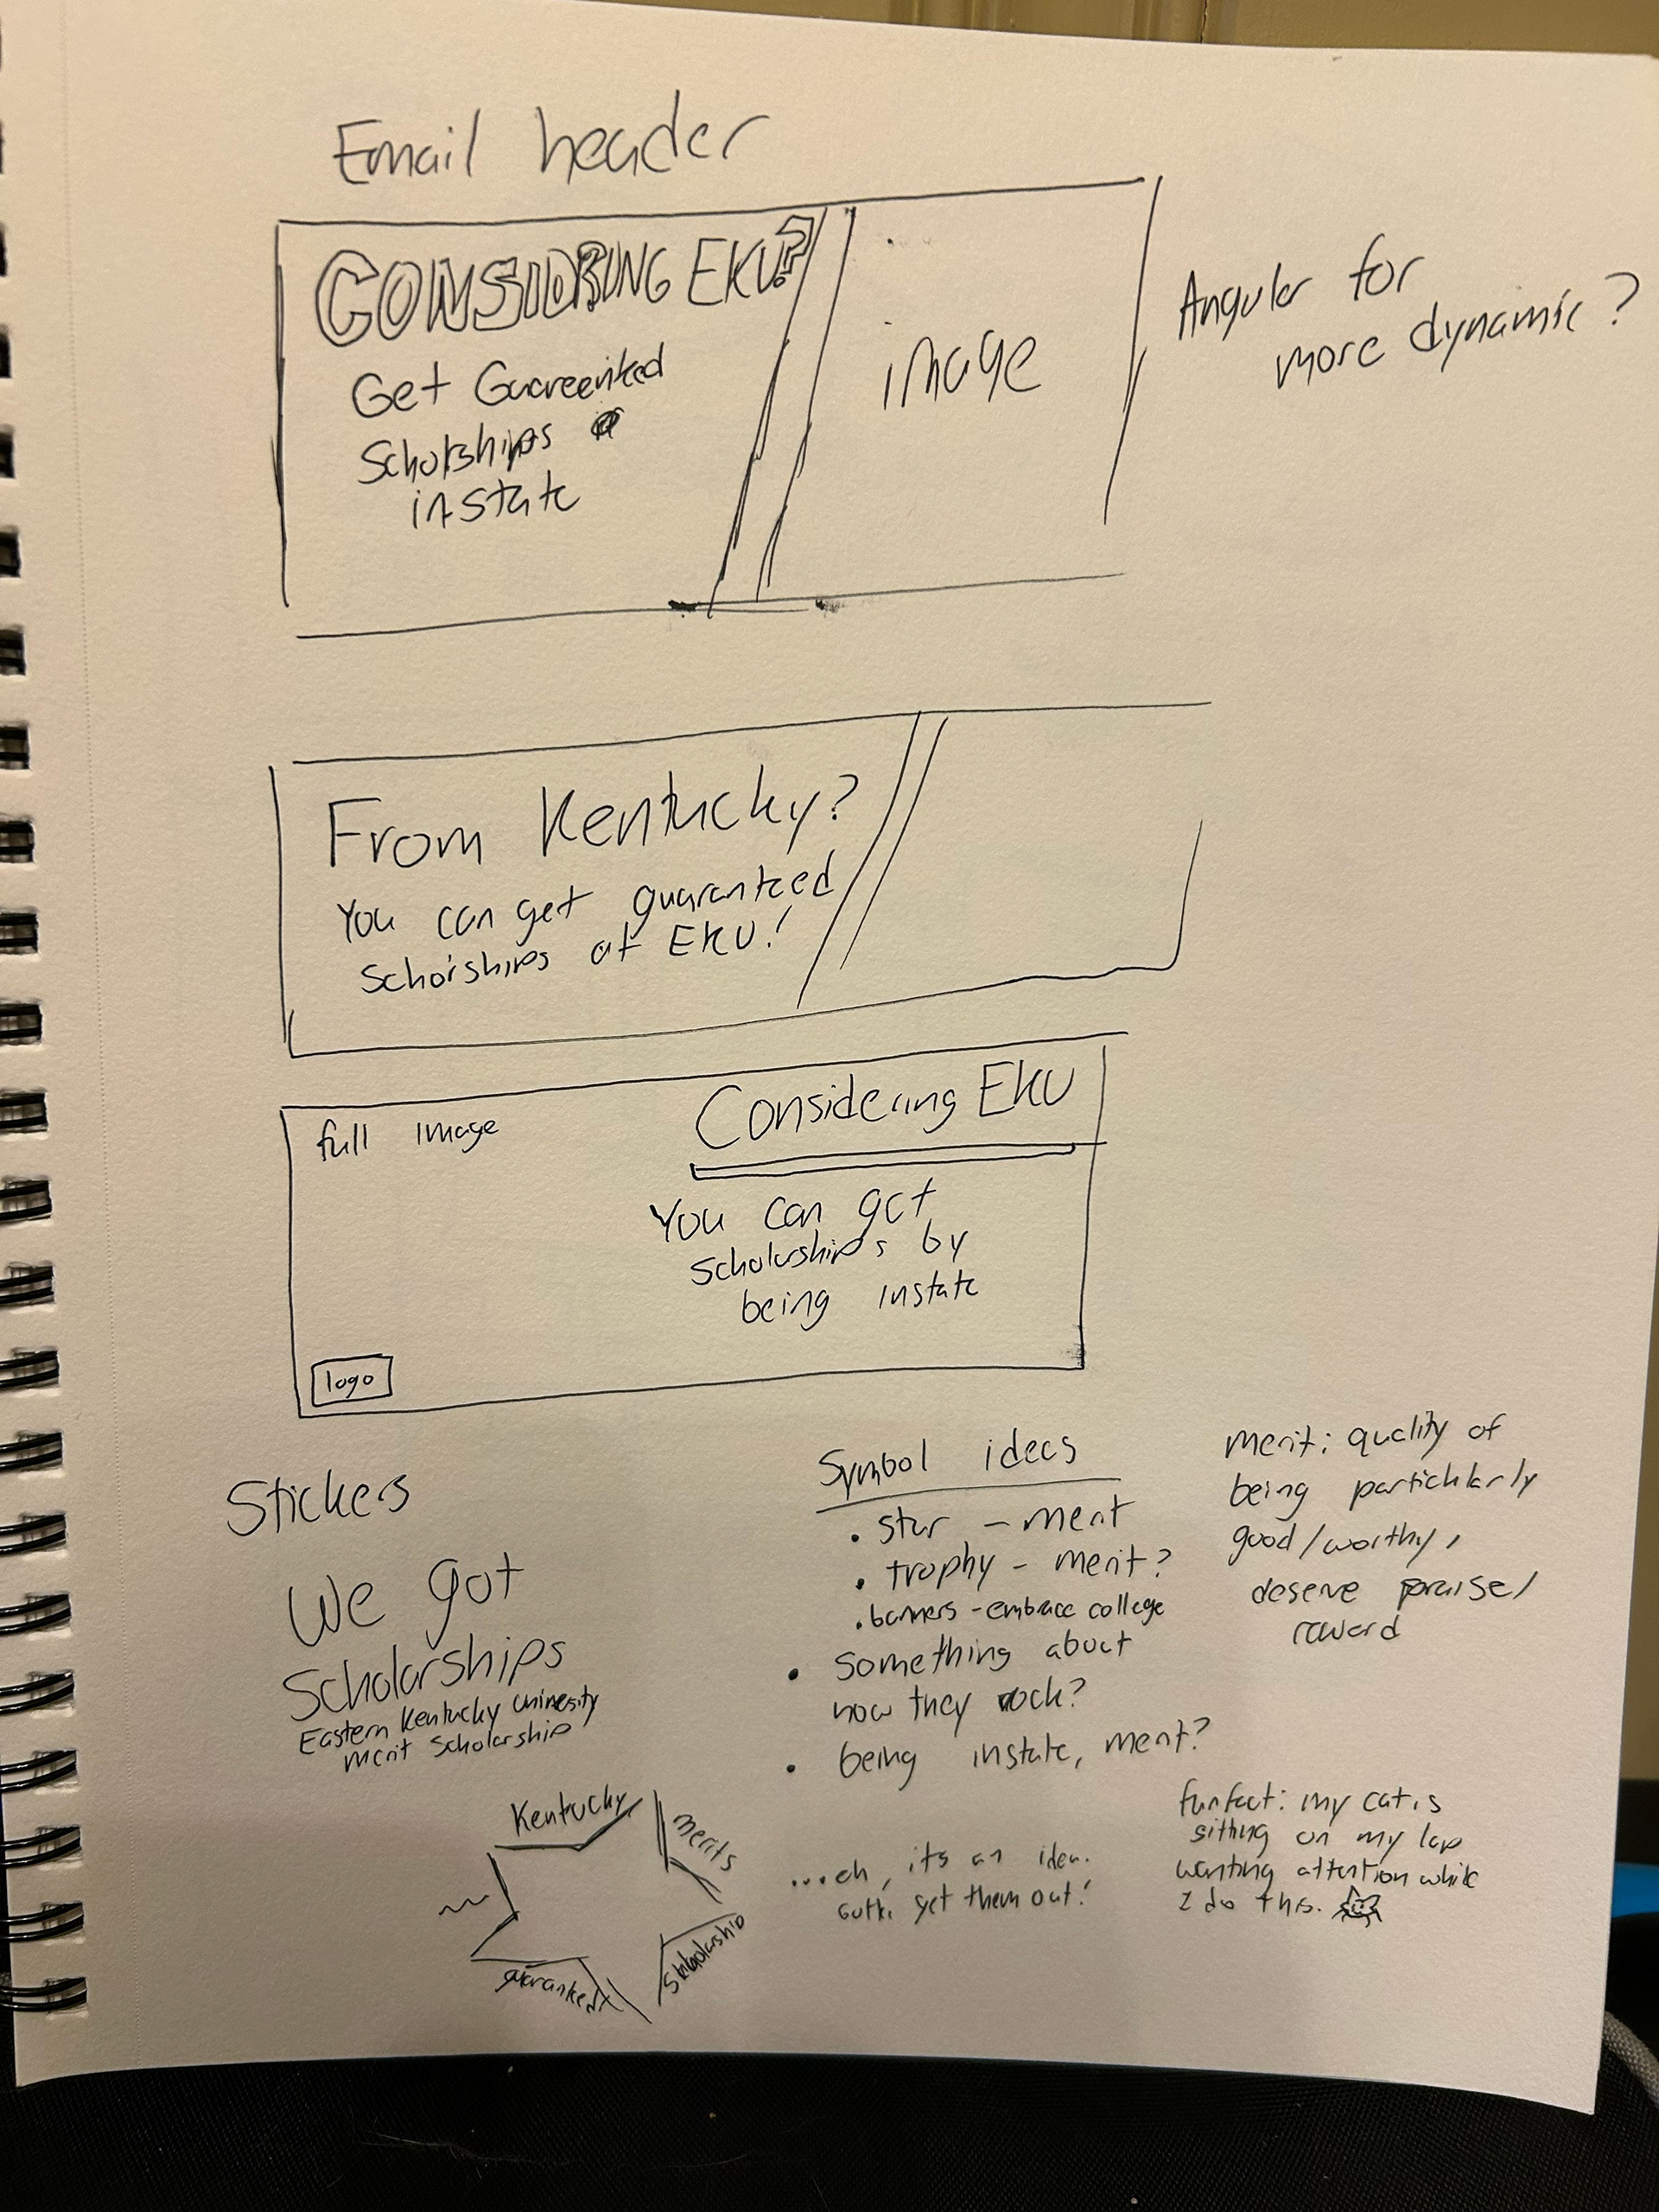 Email header
CONSIDRING EKU?
Get Guareented
Scholrships
instate
image
Angular for
more dynamic?
From Kentucky?
You can get guaranteed
Scholrships at EKU!
full image
Considering EKU
You can get
scholarships by
being instate
logo
Stickers
We got
Scholarships
Eastern Kentucky University
merit Scholarship
Kentucky
merits
Scholarship
guarankent
Symbol ideas
• star - merit
• trophy - merit?
• banners - embrace college
• Something about
how they rock?
• being instate, merit?
...eh, its an idea.
Gotta get them out!
merit: quality of
being particularly
good/worthy,
deserve praise/
reward
fun fact: my cat is
sitting on my lap
wanting attention while
I do this.